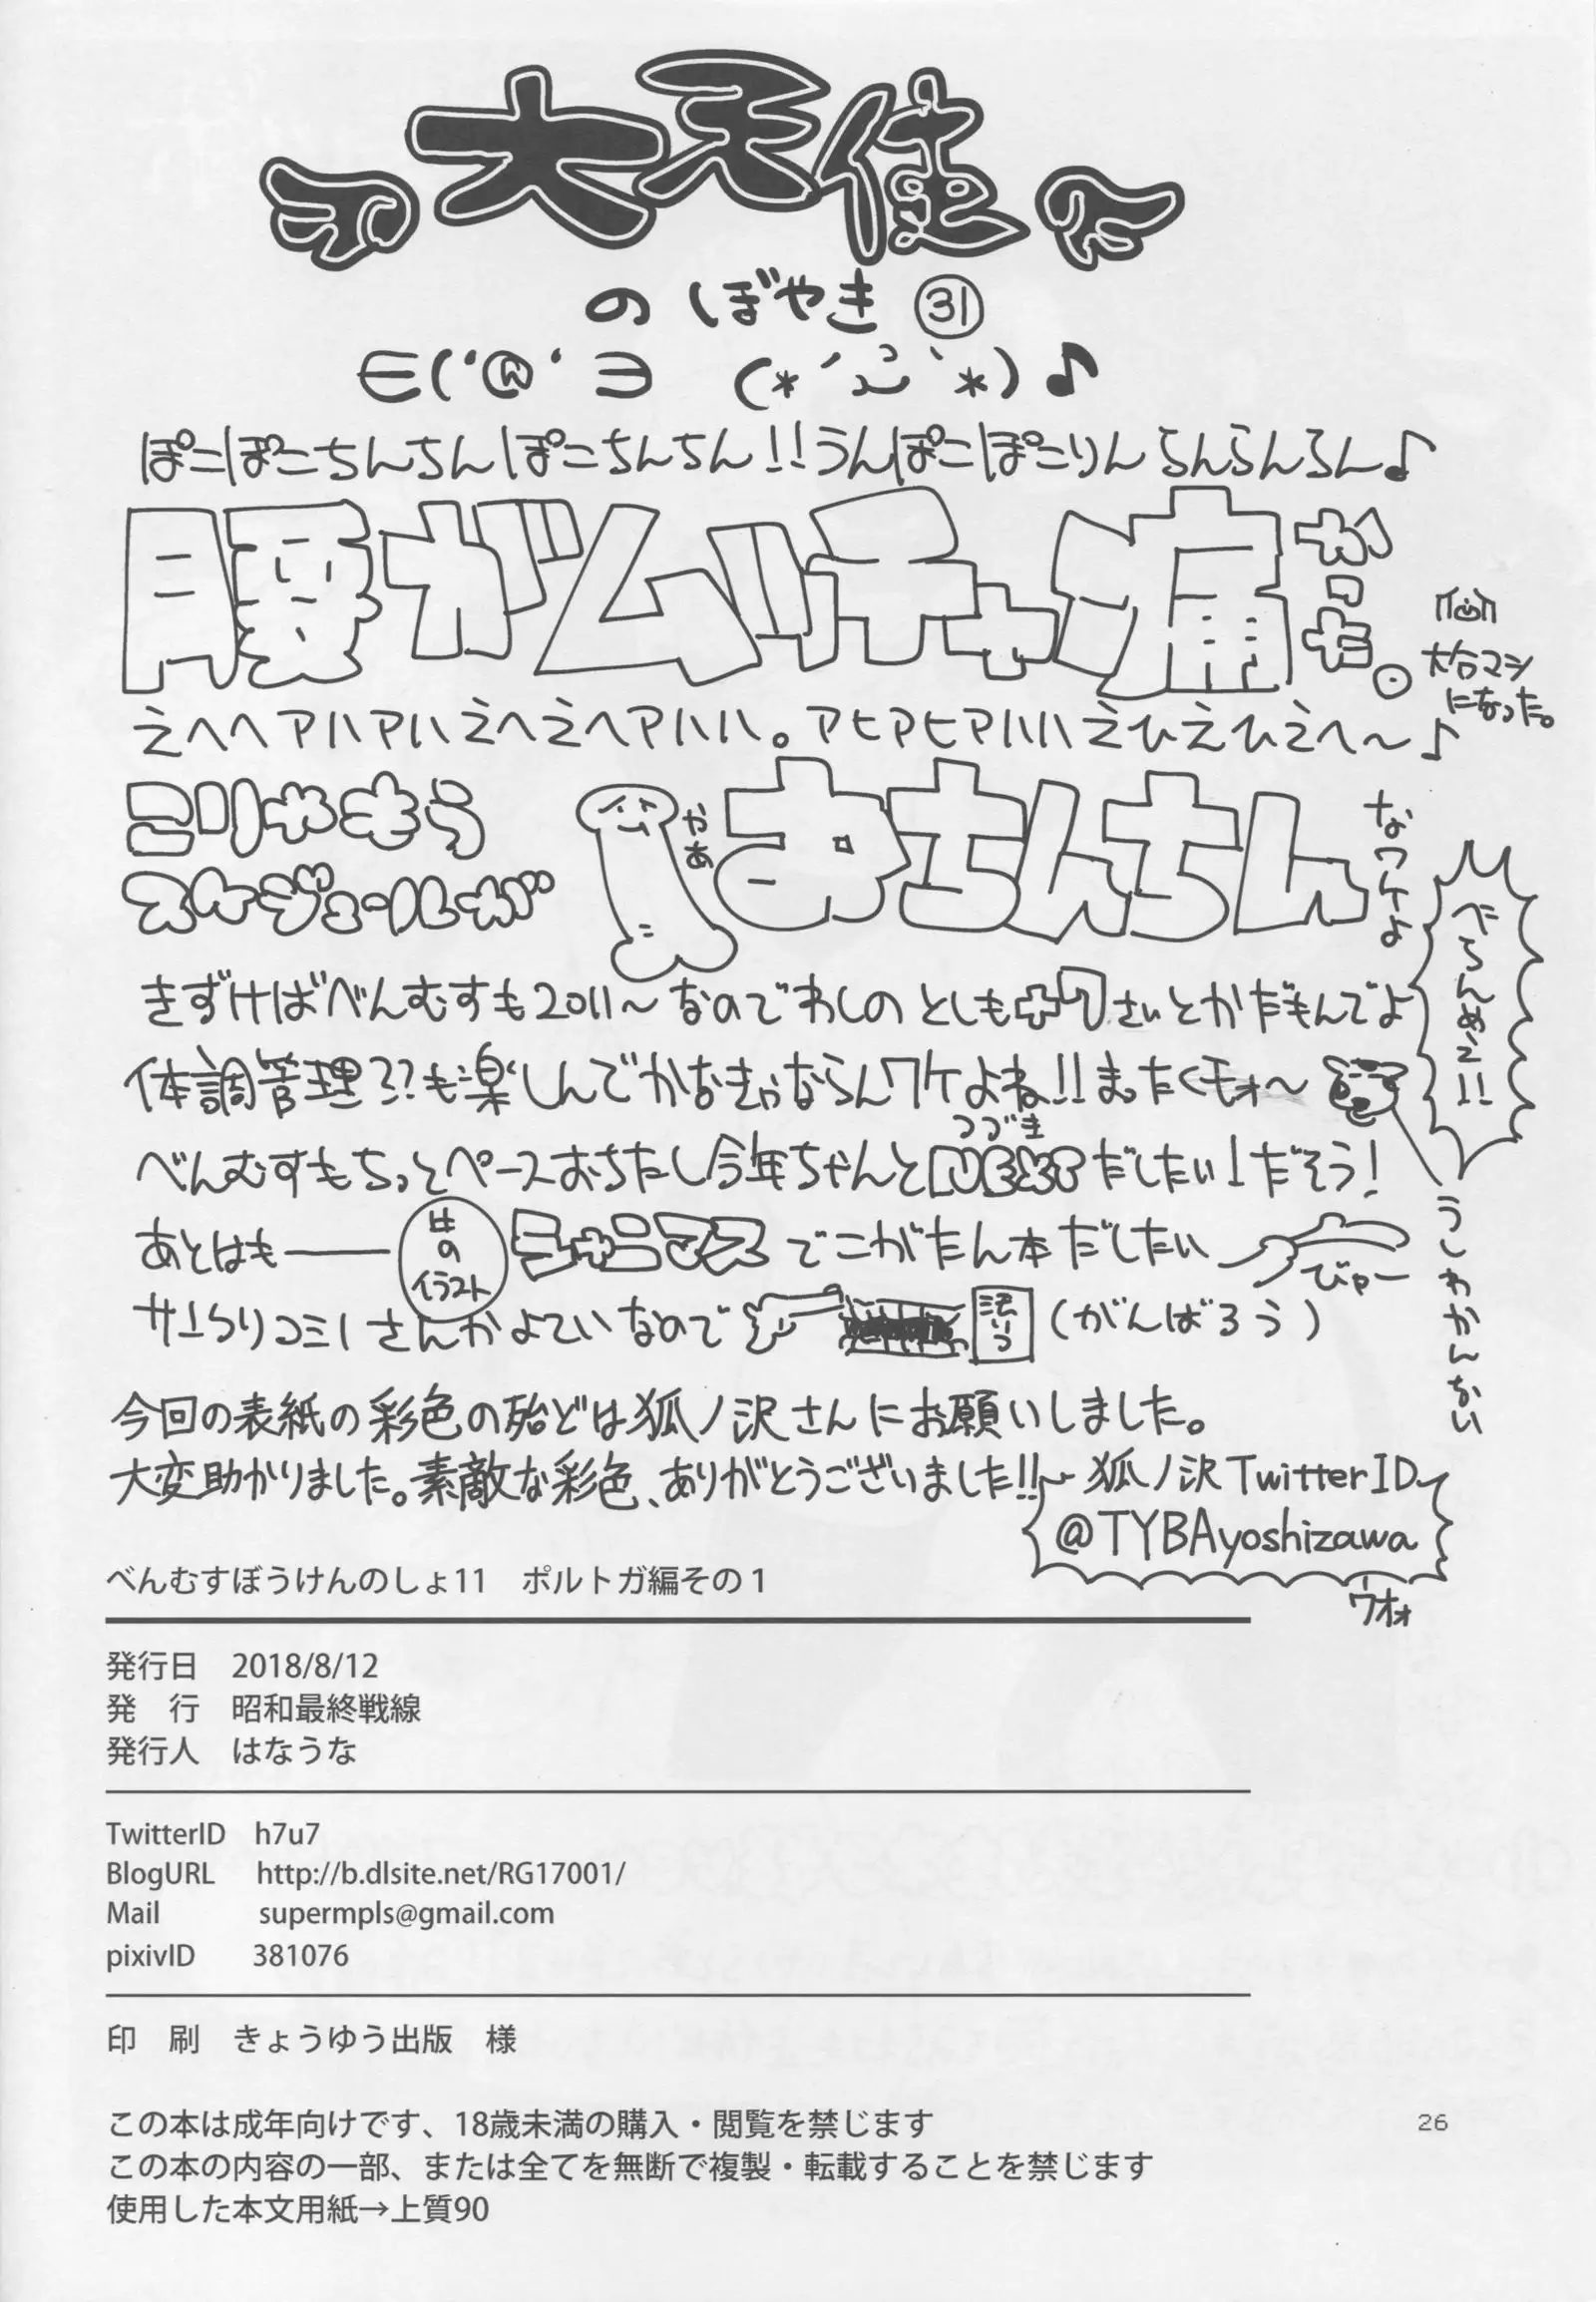 大天使
のぼやき㉛
∈('@'∋ (*´ `*)♪
ぽこぽこちんちんぽこちんちん!!うんぽこぽこりんらんらんらん♪
腰がムッチャ痛かった。
大台マシになった。
えへへアハアハえへえへアハハ。アヒアヒアハハえひえひえへ〜♪
こりゃもう
スケジュールが
やあ
おちんちん
なワケよ
べらんめえ!!
きずけばべんむすも2011〜なのでわしのとしも
さいとかだもんでよ
体調管理??も楽しんでかなきゃならんワケよね!!まったくモォ〜
つづき
べんむすもちっとペースおちたし今年ちゃんとNEXTだしたい!だそう!
あとはも──
イラスト
でこがたん本だしたい
びゃー
なので
(がんばろう)
うしわかんない
今回の表紙の彩色の殆どは狐ノ沢さんにお願いしました。
大変助かりました。素敵な彩色、ありがとうございました!!
狐ノ沢TwitterID
@TYBAyoshizawa
ウオォ
べんむすぼうけんのしょ11　ポルトガ編その1
発行日　2018/8/12
発　行　昭和最終戦線
発行人　はなうな
TwitterID　h7u7
BlogURL　http://b.dlsite.net/RG17001/
Mail　supermpls@gmail.com
pixivID　381076
印　刷　きょうゆう出版　様
この本は成年向けです、18歳未満の購入・閲覧を禁じます
この本の内容の一部、または全てを無断で複製・転載することを禁じます
使用した本文用紙→上質90
26